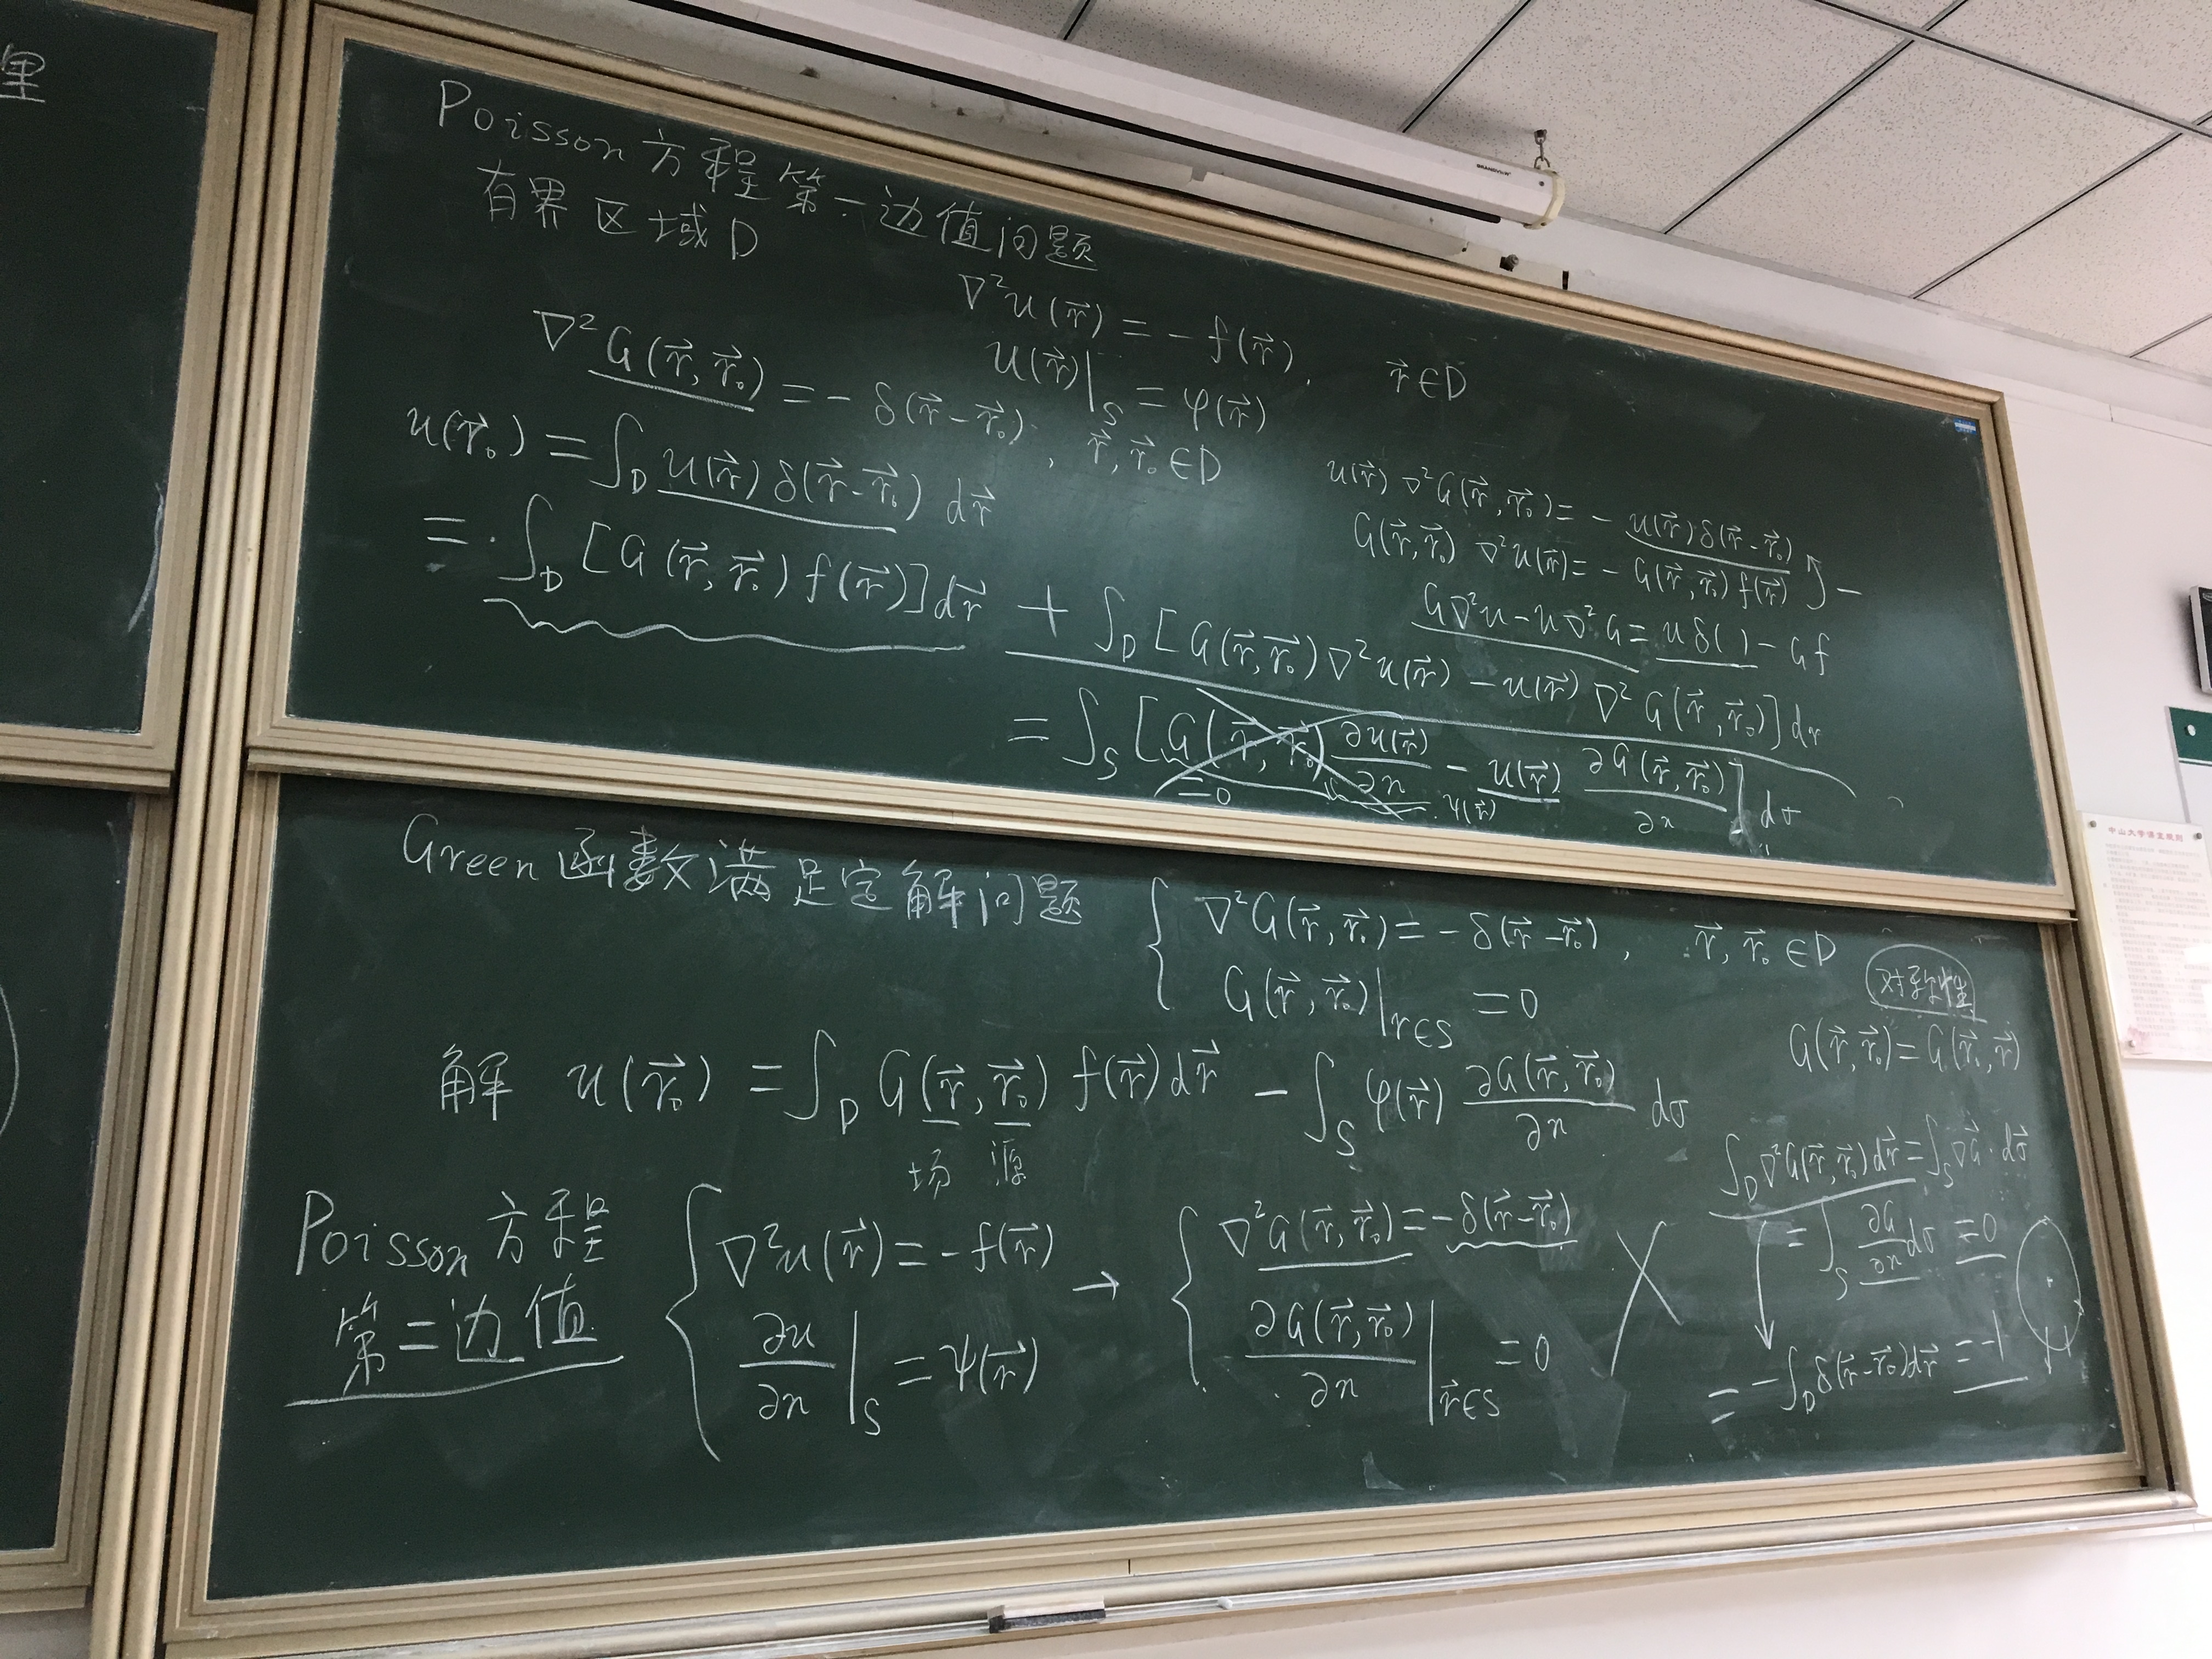 里
Poisson 方程第一边值问题
有界区域 D
∇²u(r⃗) = -f(r⃗), r⃗∈D
u(r⃗)|_S = φ(r⃗)
∇²G(r⃗,r⃗₀) = -δ(r⃗-r⃗₀), r⃗,r⃗₀∈D
u(r⃗₀) = ∫_D u(r⃗) δ(r⃗-r⃗₀) dr⃗
= ∫_D [G(r⃗,r⃗₀) f(r⃗)]dr⃗ + ∫_D [G(r⃗,r⃗₀)∇²u(r⃗) - u(r⃗)∇²G(r⃗,r⃗₀)]dr
= ∫_S [G(r⃗,r⃗₀) ∂u(r⃗)/∂n - u(r⃗) ∂G(r⃗,r⃗₀)/∂n] dσ
=0
ψ(r⃗)
u(r⃗)∇²G(r⃗,r⃗₀) = -u(r⃗)δ(r⃗-r⃗₀)
G(r⃗,r⃗₀)∇²u(r⃗) = -G(r⃗,r⃗₀)f(r⃗) -
G∇²u-u∇²G = uδ( )-Gf
Green 函数满足定解问题
∇²G(r⃗,r⃗₀) = -δ(r⃗-r⃗₀), r⃗,r⃗₀∈D
G(r⃗,r⃗₀)|_{r∈S} = 0
对称性
G(r⃗,r⃗₀) = G(r⃗₀,r⃗)
解 u(r⃗₀) = ∫_D G(r⃗,r⃗₀) f(r⃗)dr⃗ - ∫_S φ(r⃗) ∂G(r⃗,r⃗₀)/∂n dσ
场 源
Poisson 方程
第二边值
∇²u(r⃗) = -f(r⃗)
∂u/∂n|_S = ψ(r⃗)
→
∇²G(r⃗,r⃗₀) = -δ(r⃗-r⃗₀)
∂G(r⃗,r⃗₀)/∂n|_{r⃗∈S} = 0
∫_D ∇²G(r⃗,r⃗₀)dr⃗ = ∫_S ∇G·dσ⃗
= ∫_S ∂G/∂n dσ = 0
= -∫_D δ(r⃗-r⃗₀)dr⃗ = -1
中山大学课室规则